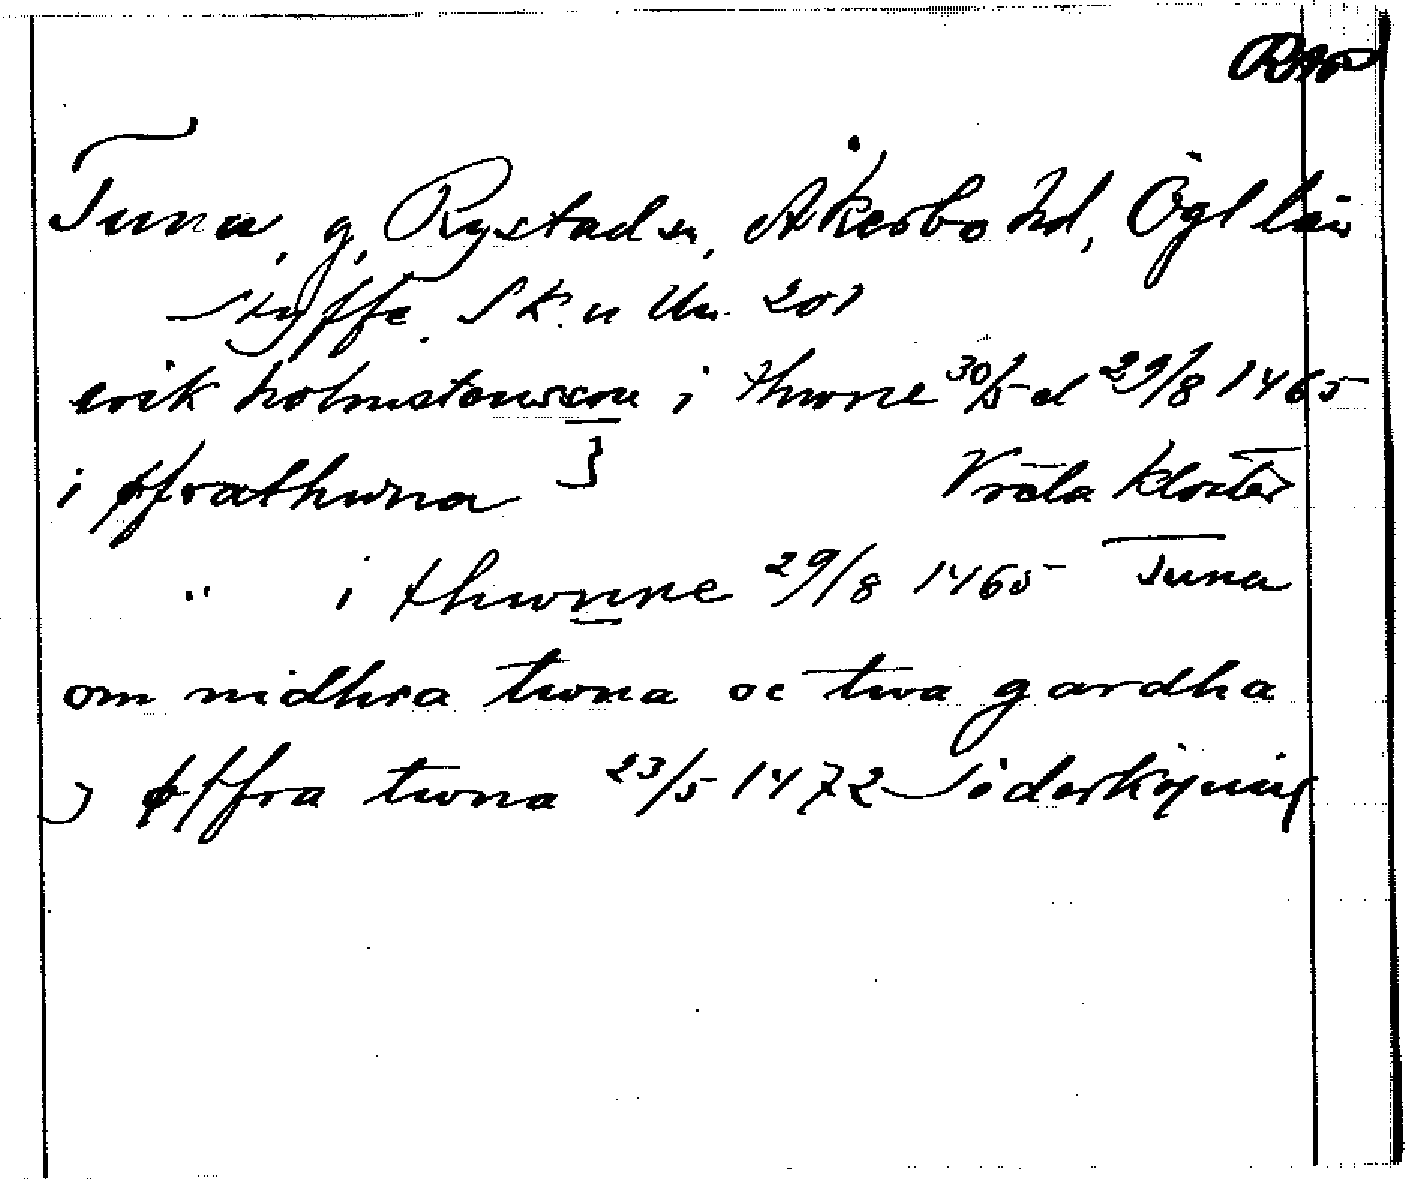 Tuna, g, Rystad sn, Åkerbo hd, Ögl län
Styffe Sk. u Un. 201
erik holmstensson i thwne 30/5 el 29/8 1465
i øfrathwna } Vreta Kloster
" i thwnne 29/8 1465 Tuna
om nidhra twna oc twa gardha
j øffra twna 23/5 1472 Söderköping